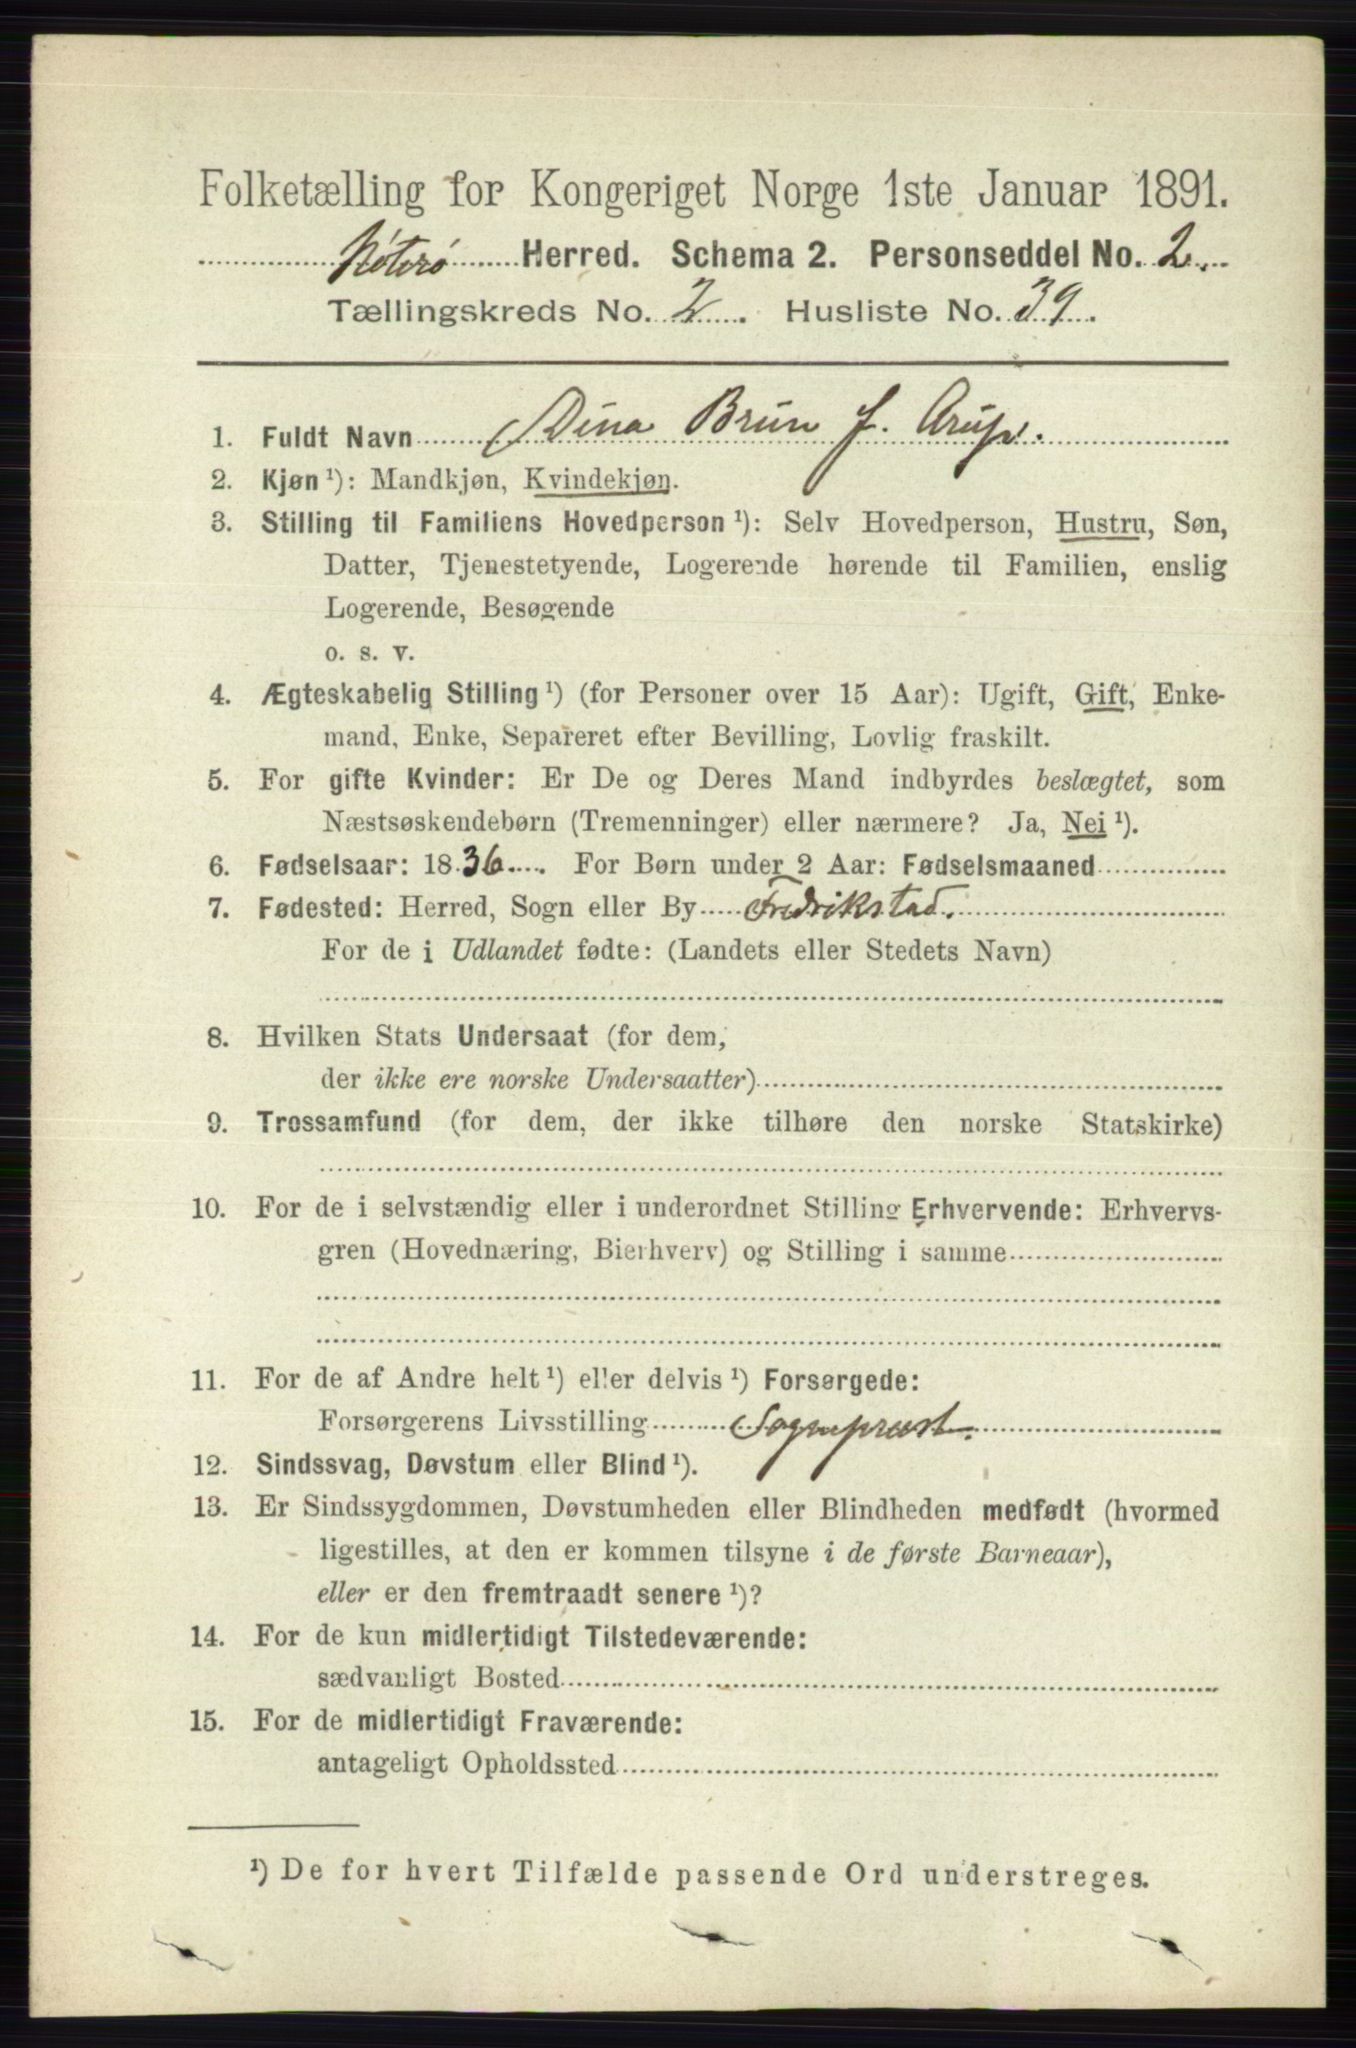 Folketælling for Kongeriget Norge 1ste Januar 1891.
Nøterø Herred. Schema 2. Personseddel No. 2.
Tællingskreds No. 2. Husliste No. 39.
1. Fuldt Navn Dina Brun f. Arup.
2. Kjøn ¹): Mandkjøn, Kvindekjøn.
3. Stilling til Familiens Hovedperson ¹): Selv Hovedperson, Hustru, Søn,
Datter, Tjenestetyende, Logerende hørende til Familien, enslig
Logerende, Besøgende
o. s. v.
4. Ægteskabelig Stilling ¹) (for Personer over 15 Aar): Ugift, Gift, Enke-
mand, Enke, Separeret efter Bevilling, Lovlig fraskilt.
5. For gifte Kvinder: Er De og Deres Mand indbyrdes beslægtet, som
Næstsøskendebørn (Tremenninger) eller nærmere? Ja, Nei ¹).
6. Fødselsaar: 1836. For Børn under 2 Aar: Fødselsmaaned
7. Fødested: Herred, Sogn eller By Fredrikstad.
For de i Udlandet fødte: (Landets eller Stedets Navn)
8. Hvilken Stats Undersaat (for dem,
der ikke ere norske Undersaatter)
9. Trossamfund (for dem, der ikke tilhøre den norske Statskirke)
10. For de i selvstændig eller i underordnet Stilling Erhvervende: Erhvervs-
gren (Hovednæring, Bierhverv) og Stilling i samme
11. For de af Andre helt ¹) eller delvis ¹) Forsørgede:
Forsørgerens Livsstilling Sognepræst.
12. Sindssvag, Døvstum eller Blind ¹).
13. Er Sindssygdommen, Døvstumheden eller Blindheden medfødt (hvormed
ligestilles, at den er kommen tilsyne i de første Barneaar),
eller er den fremtraadt senere ¹)?
14. For de kun midlertidigt Tilstedeværende:
sædvanligt Bosted
15. For de midlertidigt Fraværende:
antageligt Opholdssted
¹) De for hvert Tilfælde passende Ord understreges.